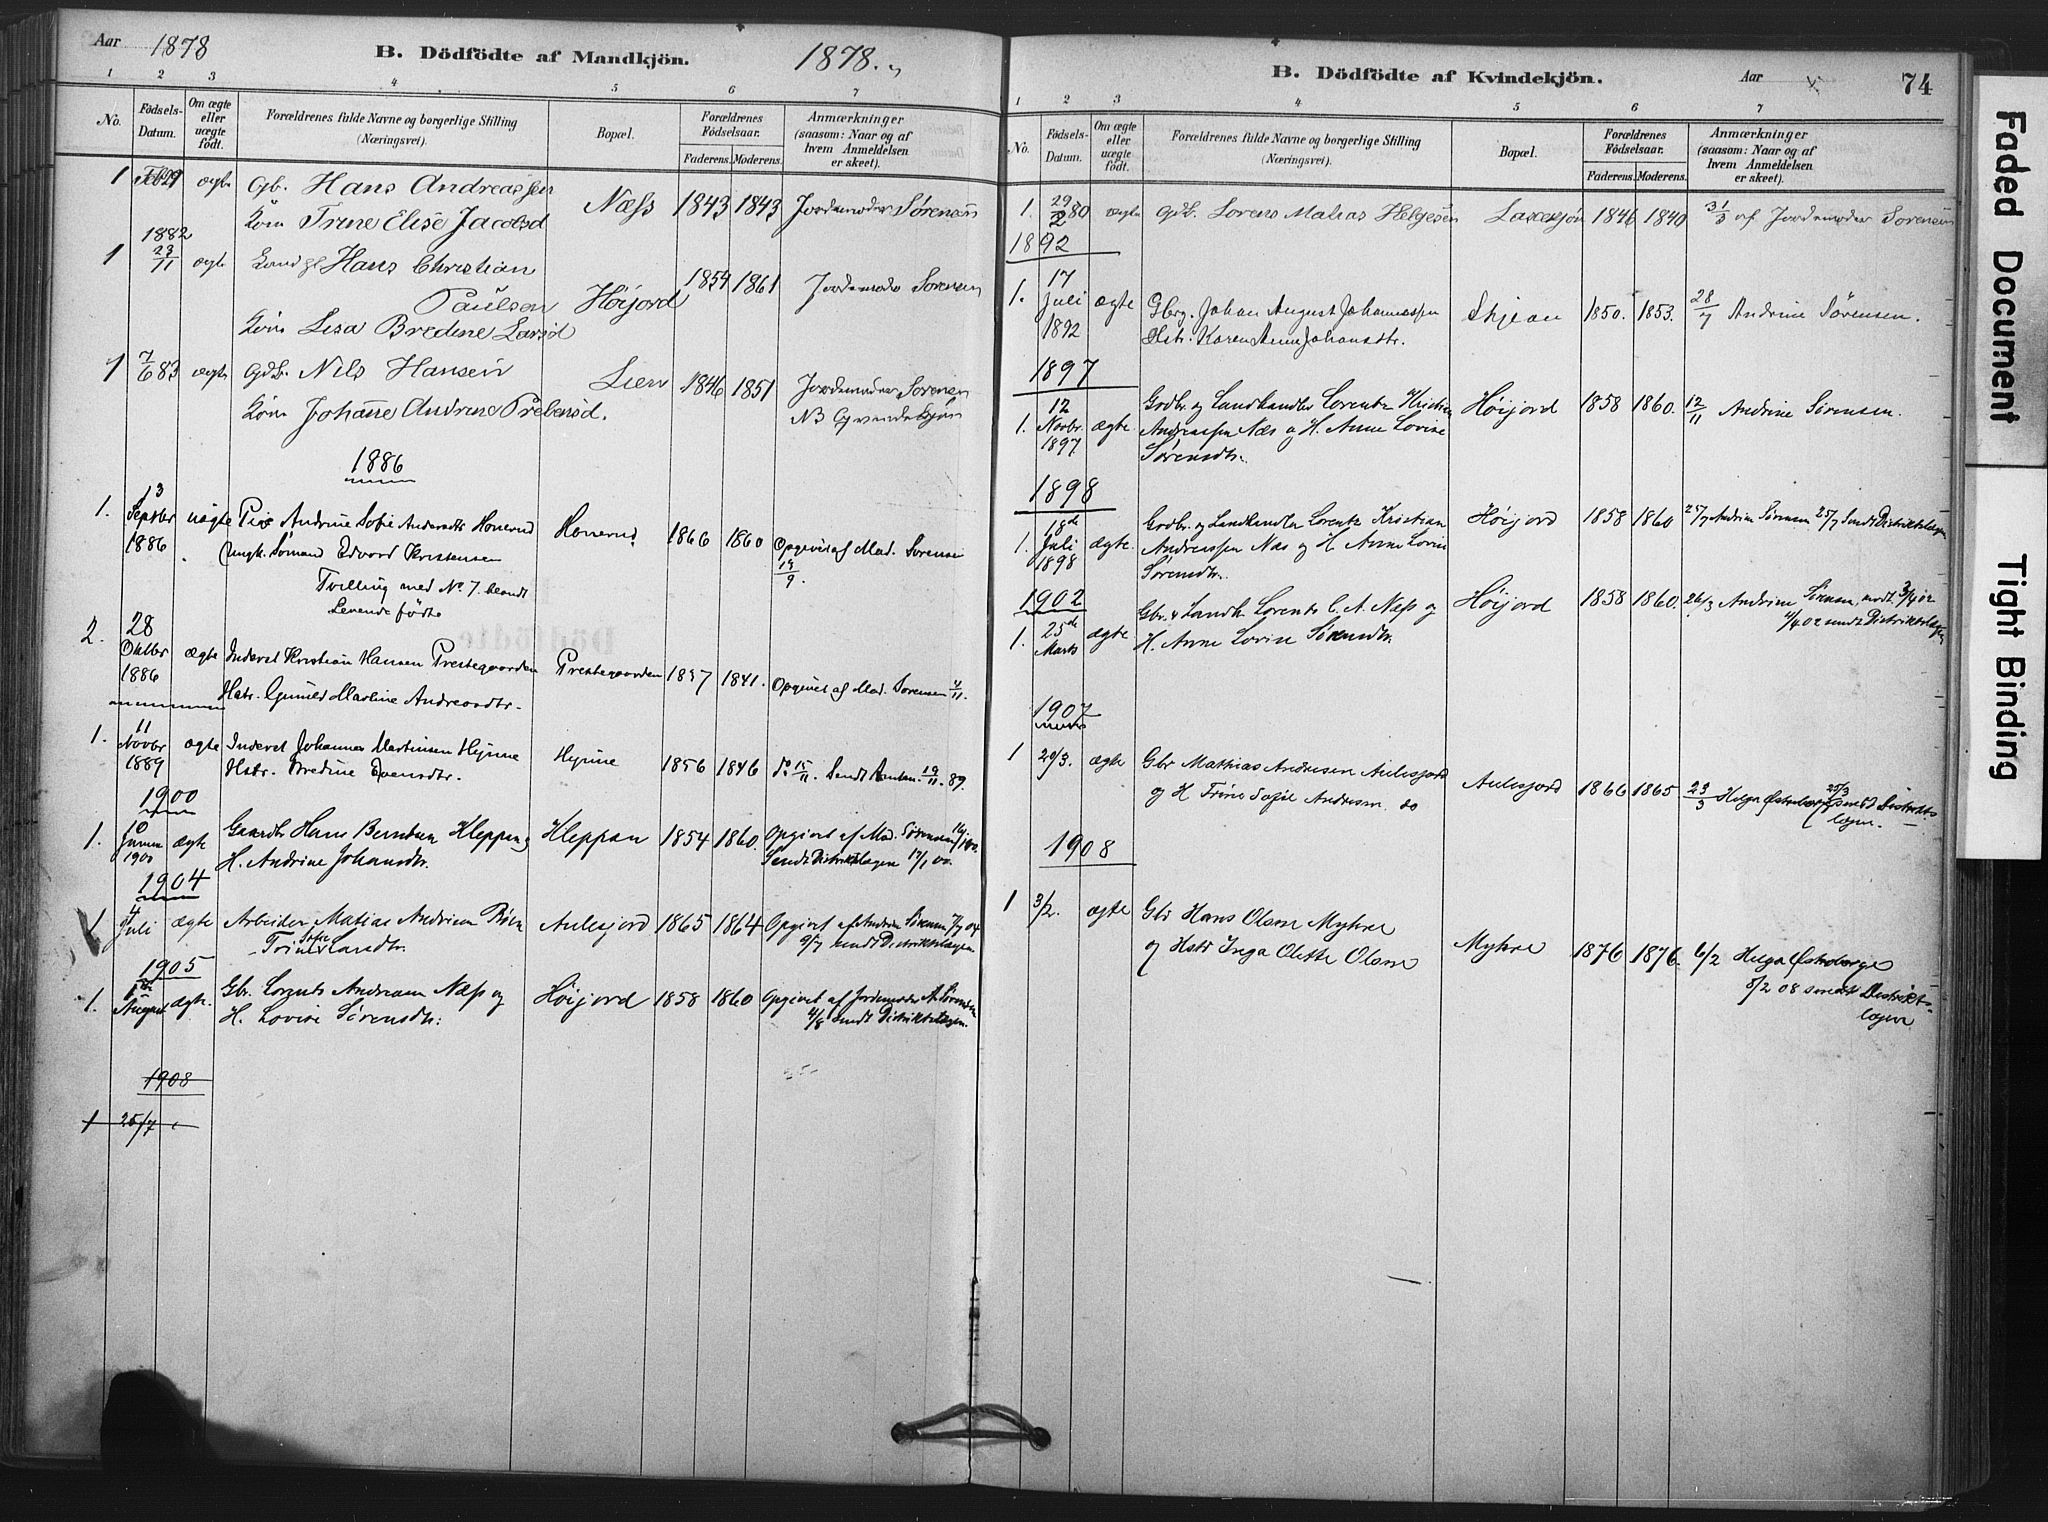 Aar 1878
B. Dödfödte af Mandkjön.
1878.
1 2 3 4 5 6 7
No.
Födsels-Datum.
Om ægte eller uægte födt.
Forældrenes fulde Navne og borgerlige Stilling
(Næringsvei).
Bopæl.
Forældrenes Födselsaar.
Faderens. Moderens.
Anmærkninger
(saasom: Naar og af
hvem Anmeldelsen
er skeet).
1 ægte Gb. Hans Andreassen
Næss 1843 1843 Jordemoder Sørensen
Kone Trine Elise Jacobsd
1882
1 23/11 ægte Hans Christian
Paulsen Høijord 1854 1861 Jordemoder Sorensen
Kone Lisa Bredine Larsd
1 7/6 83 ægte Gdb. Nils Hansen
Lien 1846 1851 Jordemoder Sorensen
Kone Johanne Andrine Prebensd.
NB Qvindekjøn
1886
1. 13 Septbr 1886 uægte Pige Andrine Sofie Andersdtr Honerud
Honerud 1866 1860 Opgivet af Mad. Sorensen
Ungk. Sømand Edvard Kristensen
19/9.
Tvilling med No 7. blandt
Levende fødte
2. 28 Oktbr 1886 ægte Inderst Kristian Hansen Prestegaarden
Prestegaarden 1837 1841. Opgivet af Mad. Sorensen 4/11.
Hstr. Gunild Martine Andreasdtr.
1. 11 Novbr 1889 ægte Inderst Johannes Martinsen Hynne
Hynne 1856 1846 do 15/11. Sendt 19/11. 89.
Hstr. Bredine Evensdtr.
1900
1. 10 Januar 1900 ægte Gaardbr Hans Berntsen Kleppan
Kleppan 1854 1860. Opgivet af Mad. Sørensen
H. Andrine Johansdtr.
Sendt Distriktslægen 17/1 00.
1904
1 4 Juli ægte Arbeider Matias Andersen
Aulesjord 1865 1864 Opgivet af Andrine Sørensen 7/7 04
Trine Sofie Larsdtr.
9/7 sendt Distriktslægen
1905
1. 1ste August ægte. Gbr. Lorents Andreasen Næss og
Høijord 1858 1860 Opgivet af Jordemoder A. Sørensen
H. Lovise Sørensdtr.
4/8 sendt Distriktslægen.
1908
1 25/7
B. Dödfödte af Kvindekjön.
Aar
74
1 2 3 4 5 6 7
No.
Födsels-Datum.
Om ægte eller uægte födt.
Forældrenes fulde Navne og borgerlige Stilling
(Næringsvei).
Bopæl.
Forældrenes Födselsaar.
Faderens. Moderens.
Anmærkninger
(saasom: Naar og af
hvem Anmeldelsen
er skeet).
1. 29/2 80 ægte Gdb. Lorens Matias Helgesen 1846 1840 31/3 af Jordemoder Sorensen
1892
1. 17 Juli 1892 ægte Gbrg. Johan August Johannessen
Skjean 1850. 1853. 28/7 Andrine Sørensen.
Hstr. Karen Anne Johansdtr.
1897
1. 12 Novbr. 1897 ægte. Grdbr. og Landhandler Lorentz Kristian
Høijord 1858 1860. 12/11 Andrine Sørensen.
Andreassen Næs og H. Anne Lovise
Sørensdtr.
1898
1. 18de Juli 1898 ægte. Grdbr. og Landhandler Lorentz Kristian
Høijord 1858 1860 25/7 Andrine Sørensen 25/7 Sendt Distriktslægen
Andreassen Næs og H. Anne Lovise
Sørensdtr.
1902
1. 25de Marts ægte Gbr. & Landh. Lorents C. A. Næss og
Høijord 1858 1860. 26/3 Andrine Sørensen, modt. 3/4 02
H. Anne Lovise Sørensdtr.
4/4 02 sendt Distriktslægen
1907
1 20/3. ægte Gbr Mathias Andresen Aulesjord
Aulesjord 1866 1865 23/3 Helga Østreberge 25/3 sendt Distrikts-
og H Trine Sofie Andresen do
lægen.
1908
1 3/2. ægte Gbr Hans Olsen Myhre
og Hstr Inga Olette Olsen
Myhre 1876 1876. 6/2 Helga Østreberge
8/2 08 sendt Distrikts-
lægen
Faded Document
Tight Binding